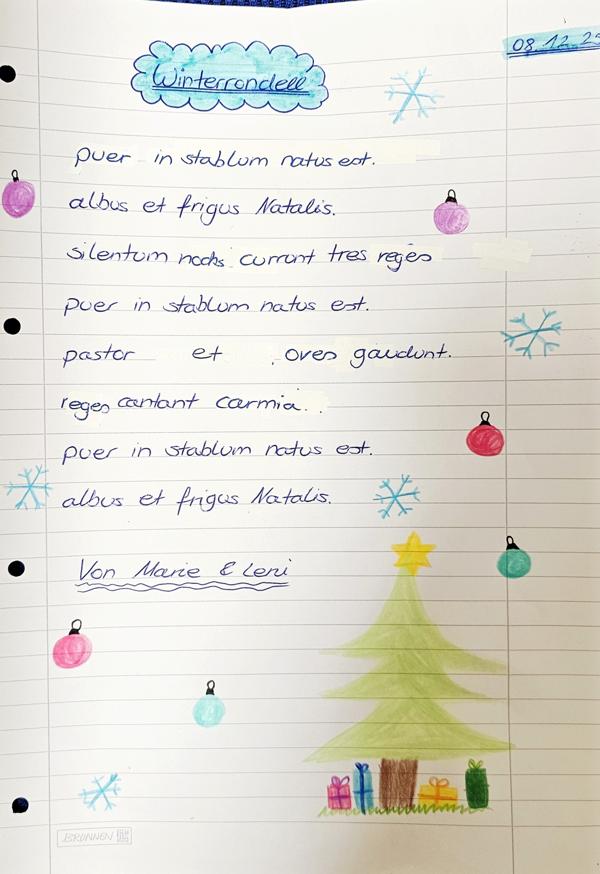 08.12.25
Winterrondell
puer in stablum natus est.
albus et frigus Natalis.
silentum noctis currunt tres reges
puer in stablum natus est.
pastor et . oves gaudunt.
reges cantant carmia.
puer in stablum natus est.
albus et frigus Natalis.
Von Marie & Leni
BRUNNEN